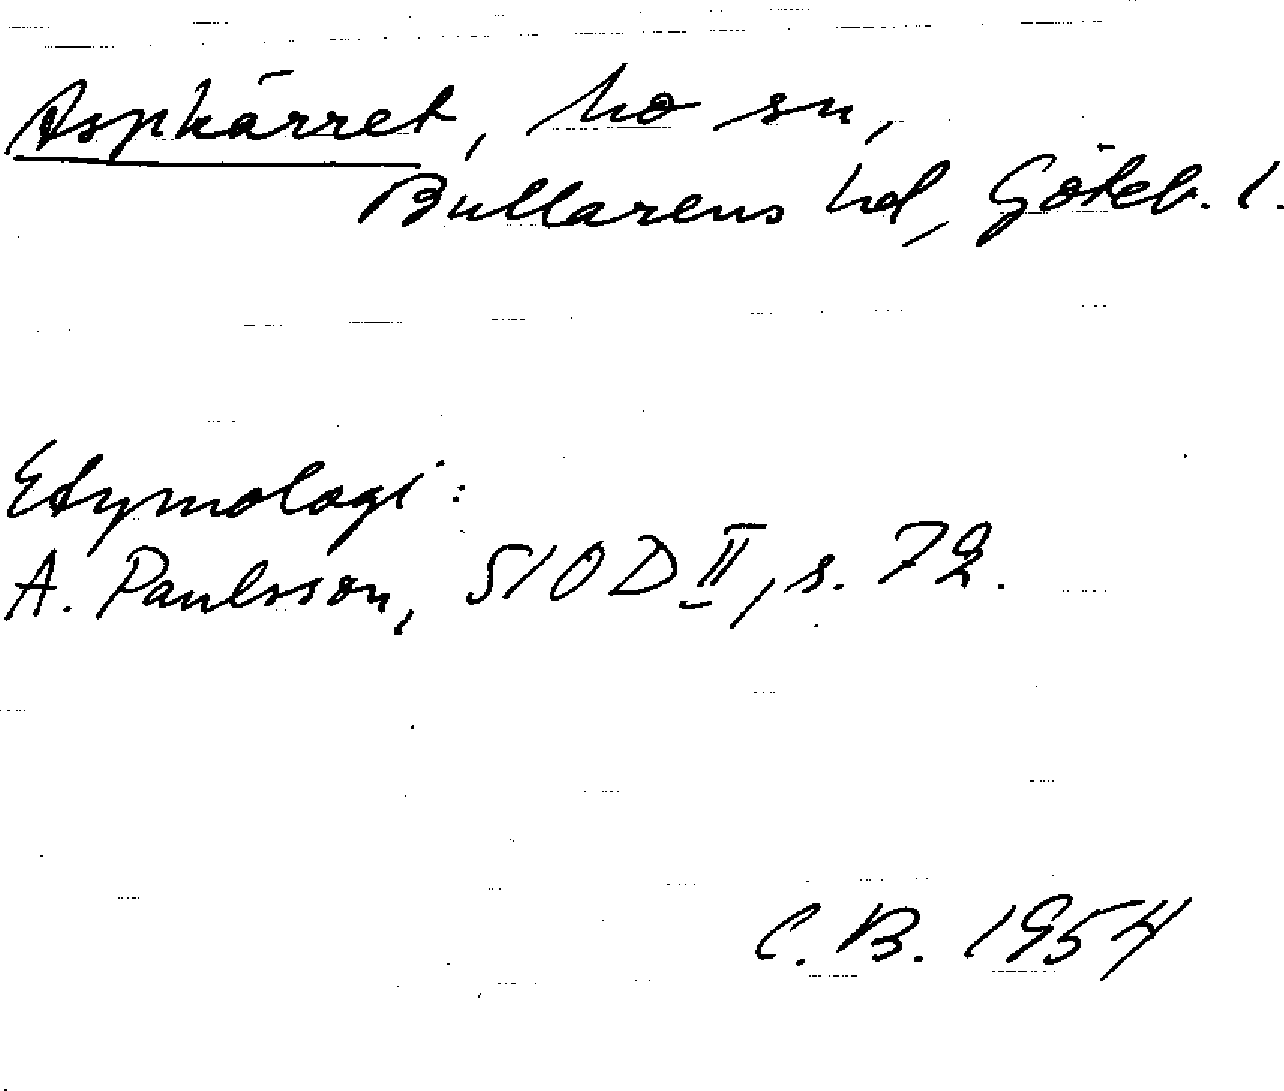 Aspkärret, Mo sn,
Bullarens hd, Göteb. l.
Etymologi:
A. Paulsson, SIOD II, s. 72.
C. B. 1954